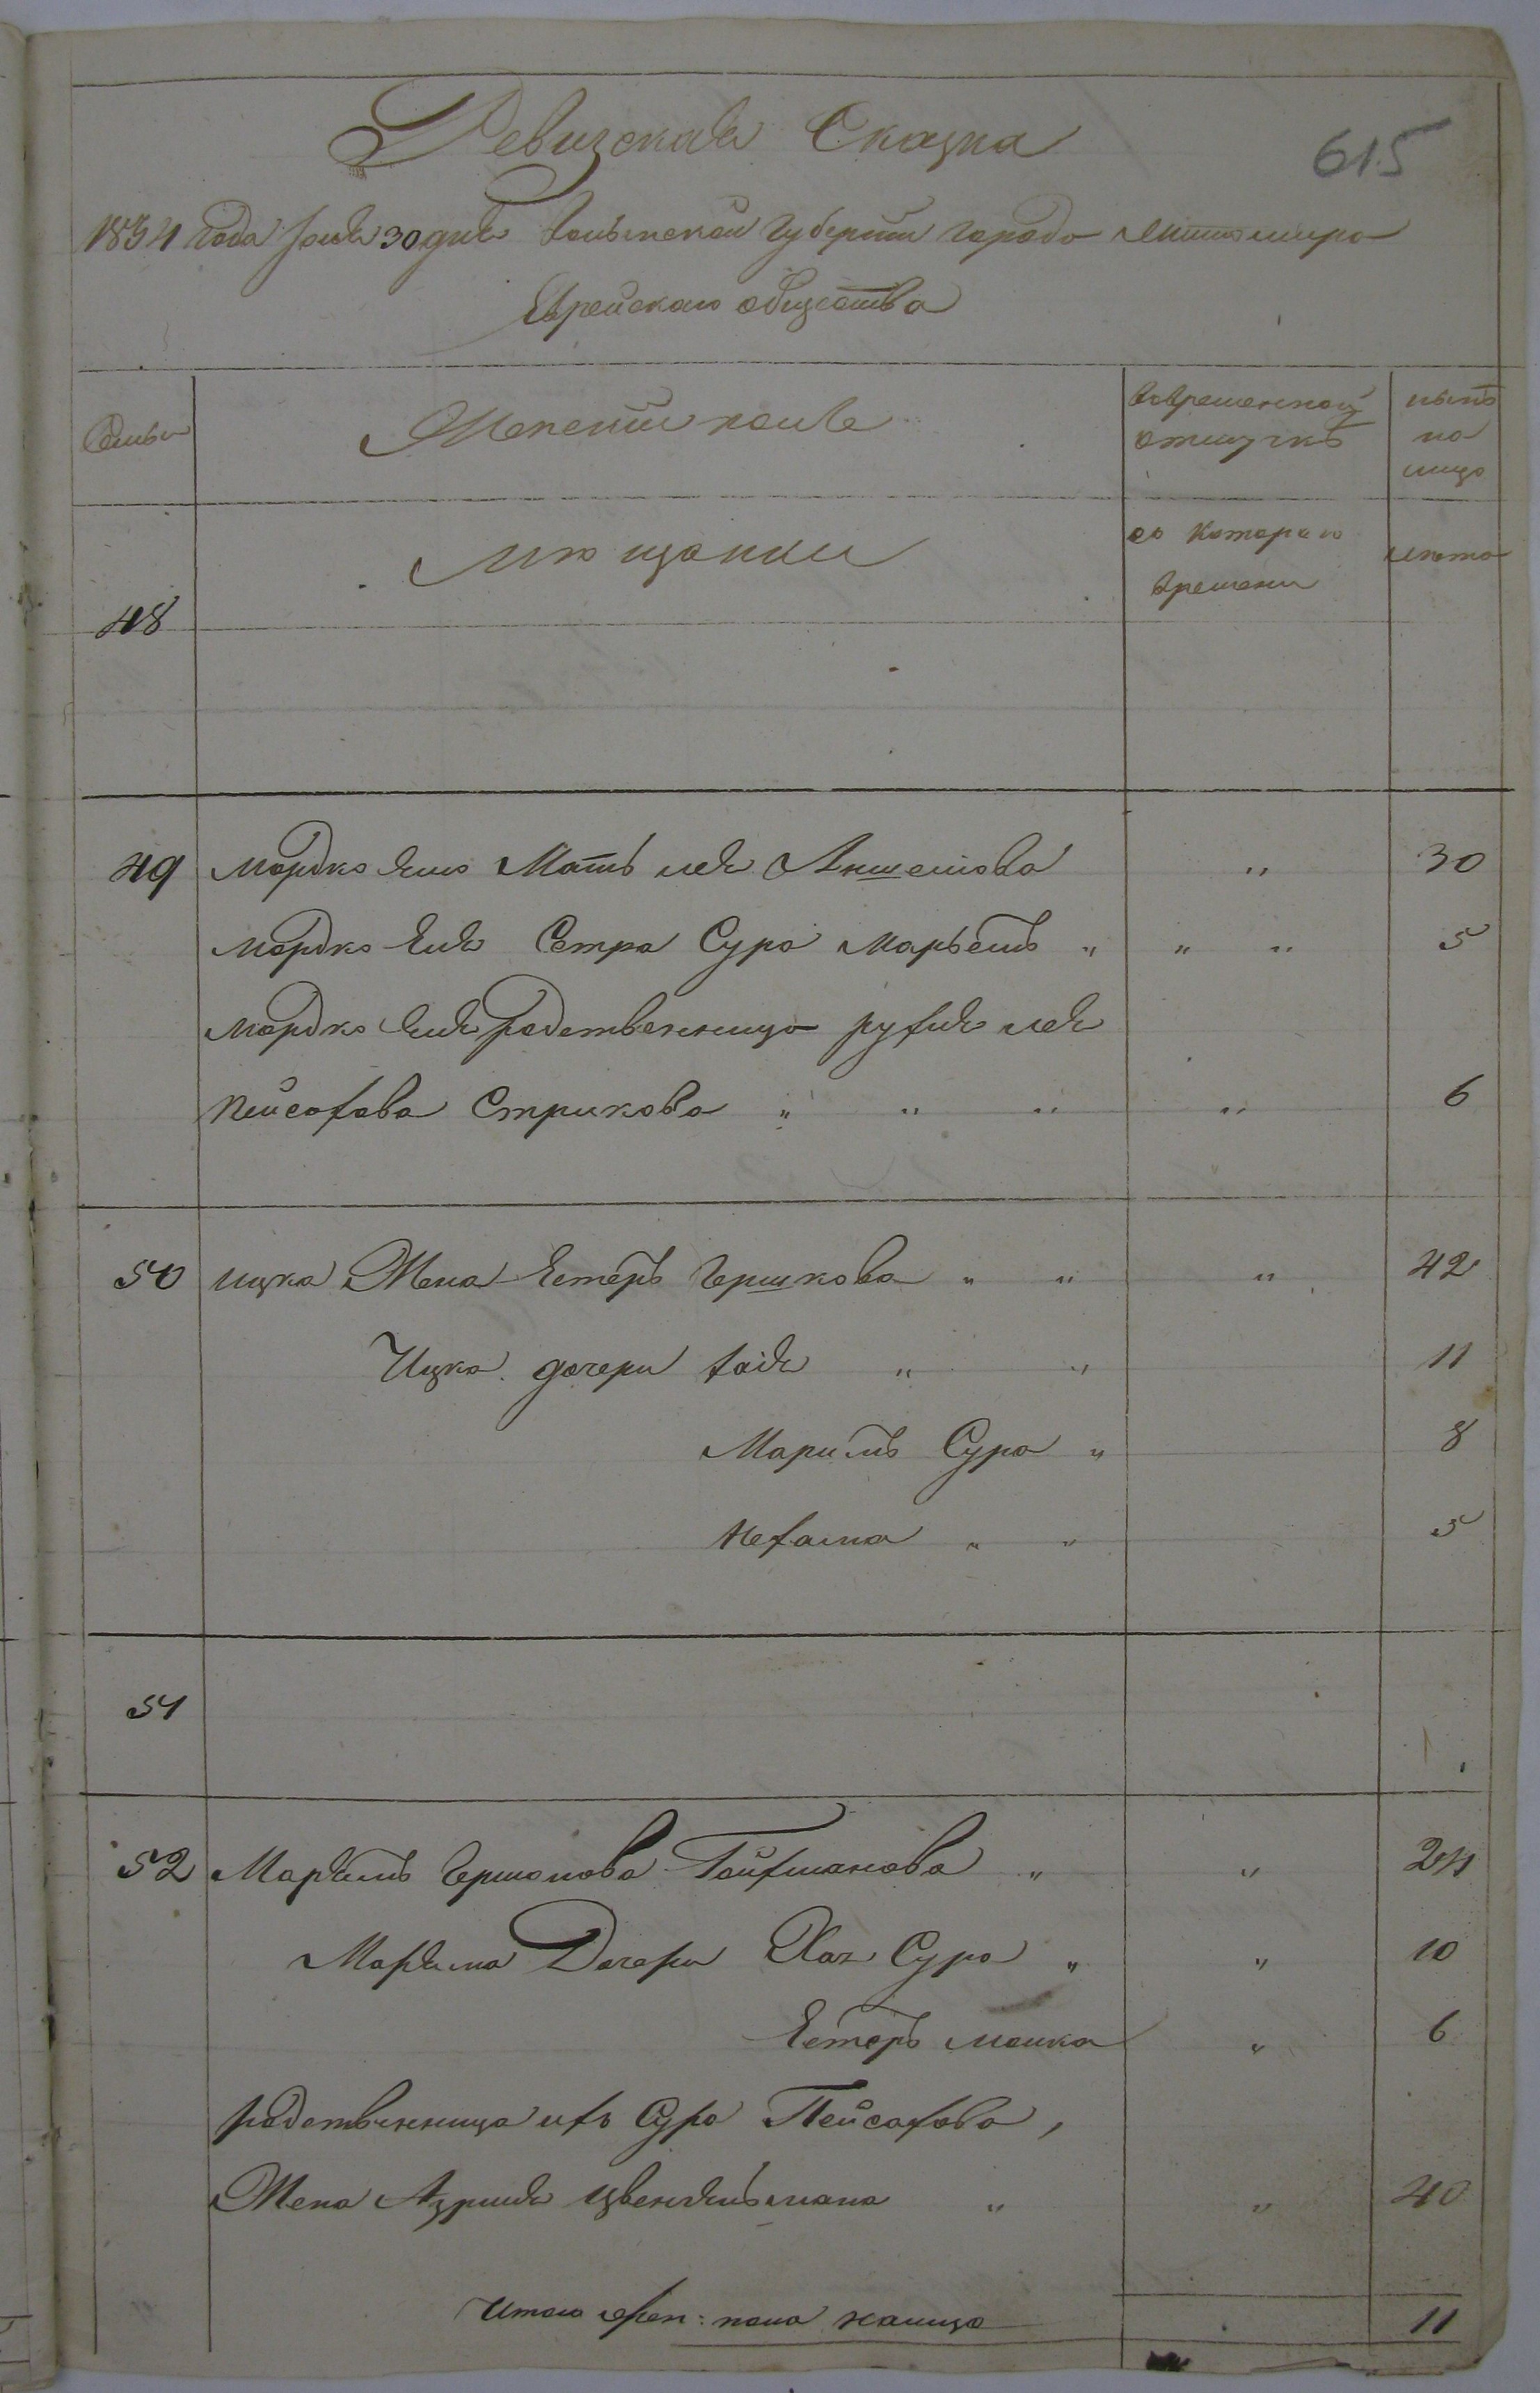 Ревизская Сказка
615
1834 года Маия 30 дня Волынской Губернии города Житомира
Еврейского общества
Семьи
Женский полъ
вовременной отлучкѣ
нынѣ на лицо
мещанки
съ котораго времени
лѣта
48
49 Мордко Елио Мать лея Аншелова " 30
Мордко Еля Сетра Сура Марьемъ " " " 5
Мордко Еля родственница рухля лея
Пейсахова Стрикова " " " " 6
50 ицка Жена Естеръ Гершкова " " " 42
Ицка дочери хаія " " 11
Мариль Сура " 8
Нехама " " 5
51
52 Марьямъ Гершонова Гойхманова " " 24
Марьяма Дочери Хая Сура " " 10
Естеръ малка " 6
родственница ихъ Сура Пейсахова,
Жена Азриля Цвенгельмана " " 40
Итого жен: пола налицо 11